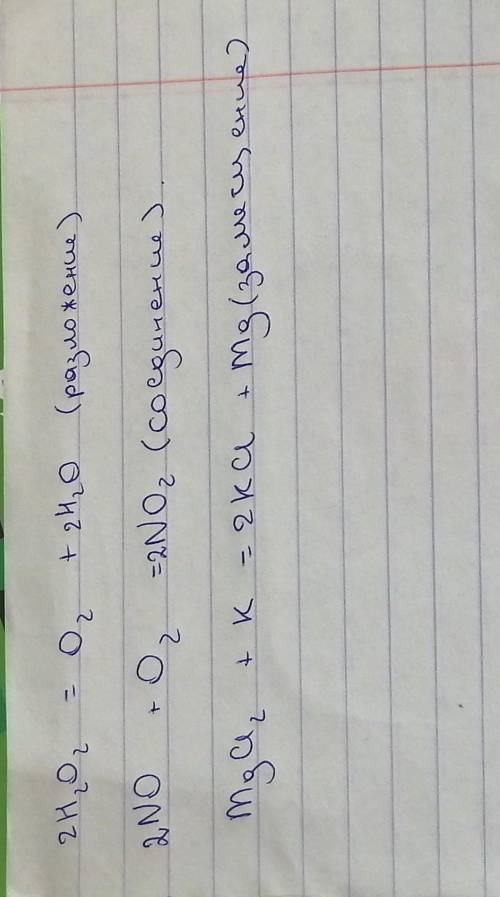 2H₂O₂ = O₂ + 2H₂O (разложение)
2NO + O₂ =2NO₂ (соединение).
MgCl₂ + K = 2KCl + Mg(замещение)